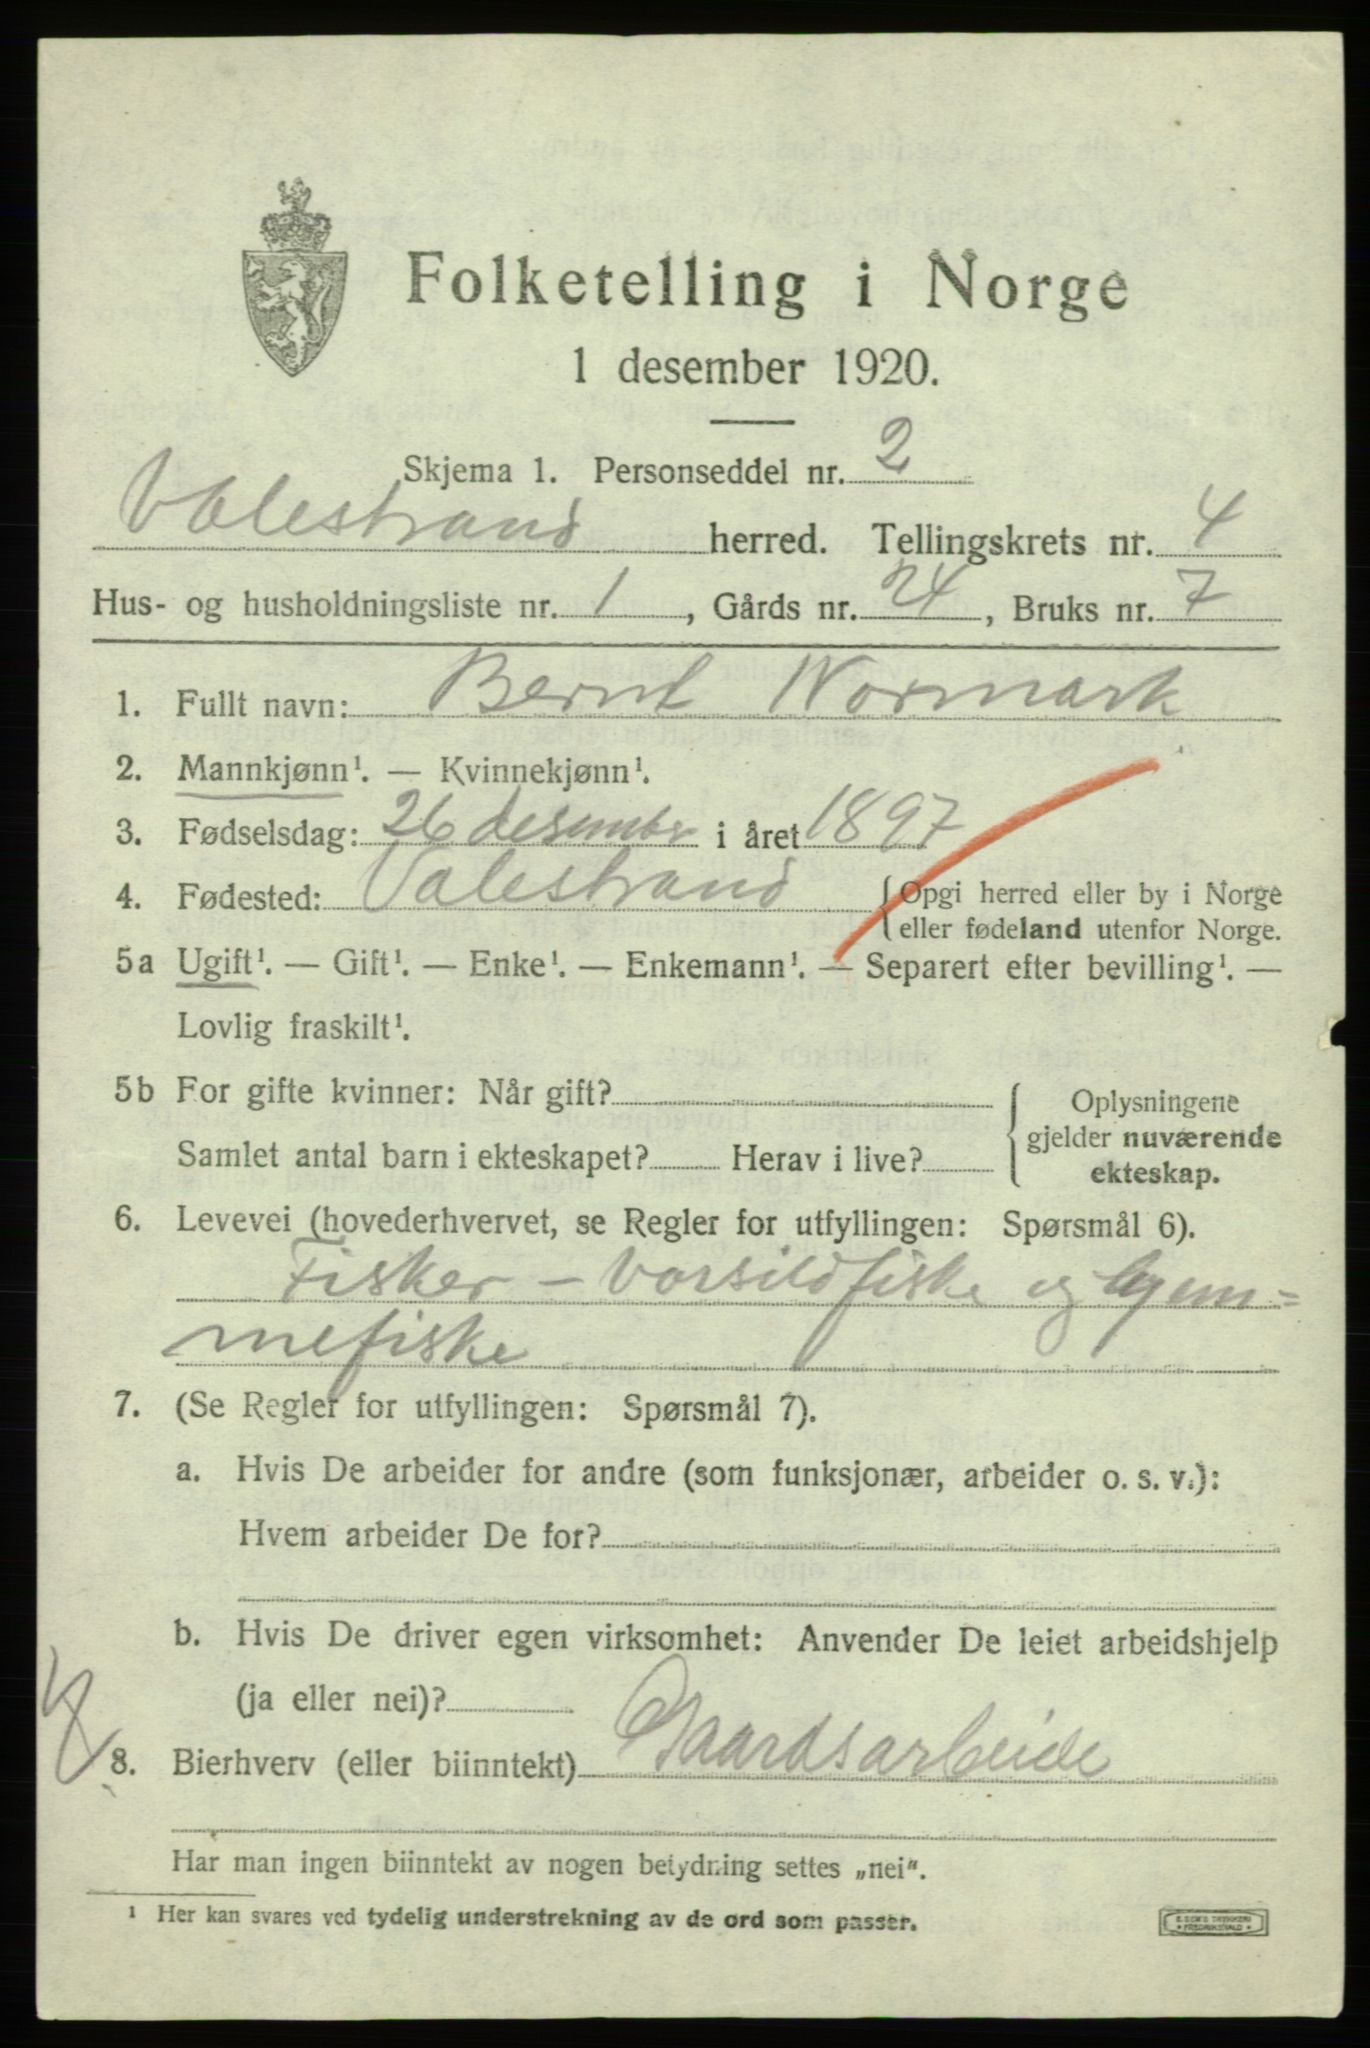 Folketelling i Norge
1 desember 1920.
Skjema 1. Personseddel nr. 2
Valestrand herred. Tellingskrets nr. 4
Hus- og husholdningsliste nr. 1, Gårds nr. 24, Bruks nr. 7
1. Fullt navn: Bernt Normark
2. Mannkjønn¹. — Kvinnekjønn¹.
3. Fødselsdag: 26 desember i året 1897
4. Fødested: Valestrand {Opgi herred eller by i Norge
eller fødeland utenfor Norge.
5a Ugift¹. — Gift¹. — Enke¹. — Enkemann¹. — Separert efter bevilling¹. —
Lovlig fraskilt¹.
5b For gifte kvinner: Når gift?
Samlet antal barn i ekteskapet? Herav i live?
Oplysningene
gjelder nuværende
ekteskap.
6. Levevei (hovederhvervet, se Regler for utfyllingen: Spørsmål 6).
Fisker – vorsildfiske og hjem-
mefiske
7. (Se Regler for utfyllingen: Spørsmål 7).
a. Hvis De arbeider for andre (som funksjonær, arbeider o. s. v.):
Hvem arbeider De for?
b. Hvis De driver egen virksomhet: Anvender De leiet arbeidshjelp
(ja eller nei)?
8. Bierhverv (eller biinntekt) Gaardsarbeide
Har man ingen biinntekt av nogen betydning settes „nei“.
¹ Her kan svares ved tydelig understrekning av de ord som passer.